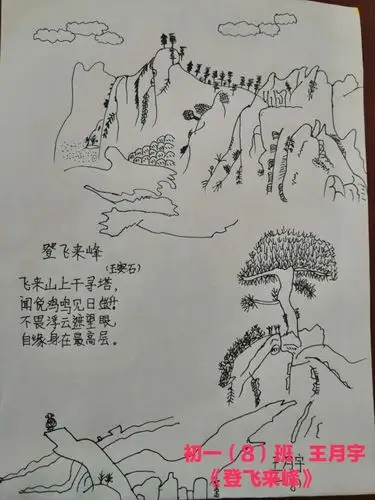 登飞来峰
(王安石)
飞来山上千寻塔，
闻说鸡鸣见日升。
不畏浮云遮望眼，
自缘身在最高层。
初一（8）班 王月宇
王月宇
《登飞来峰》